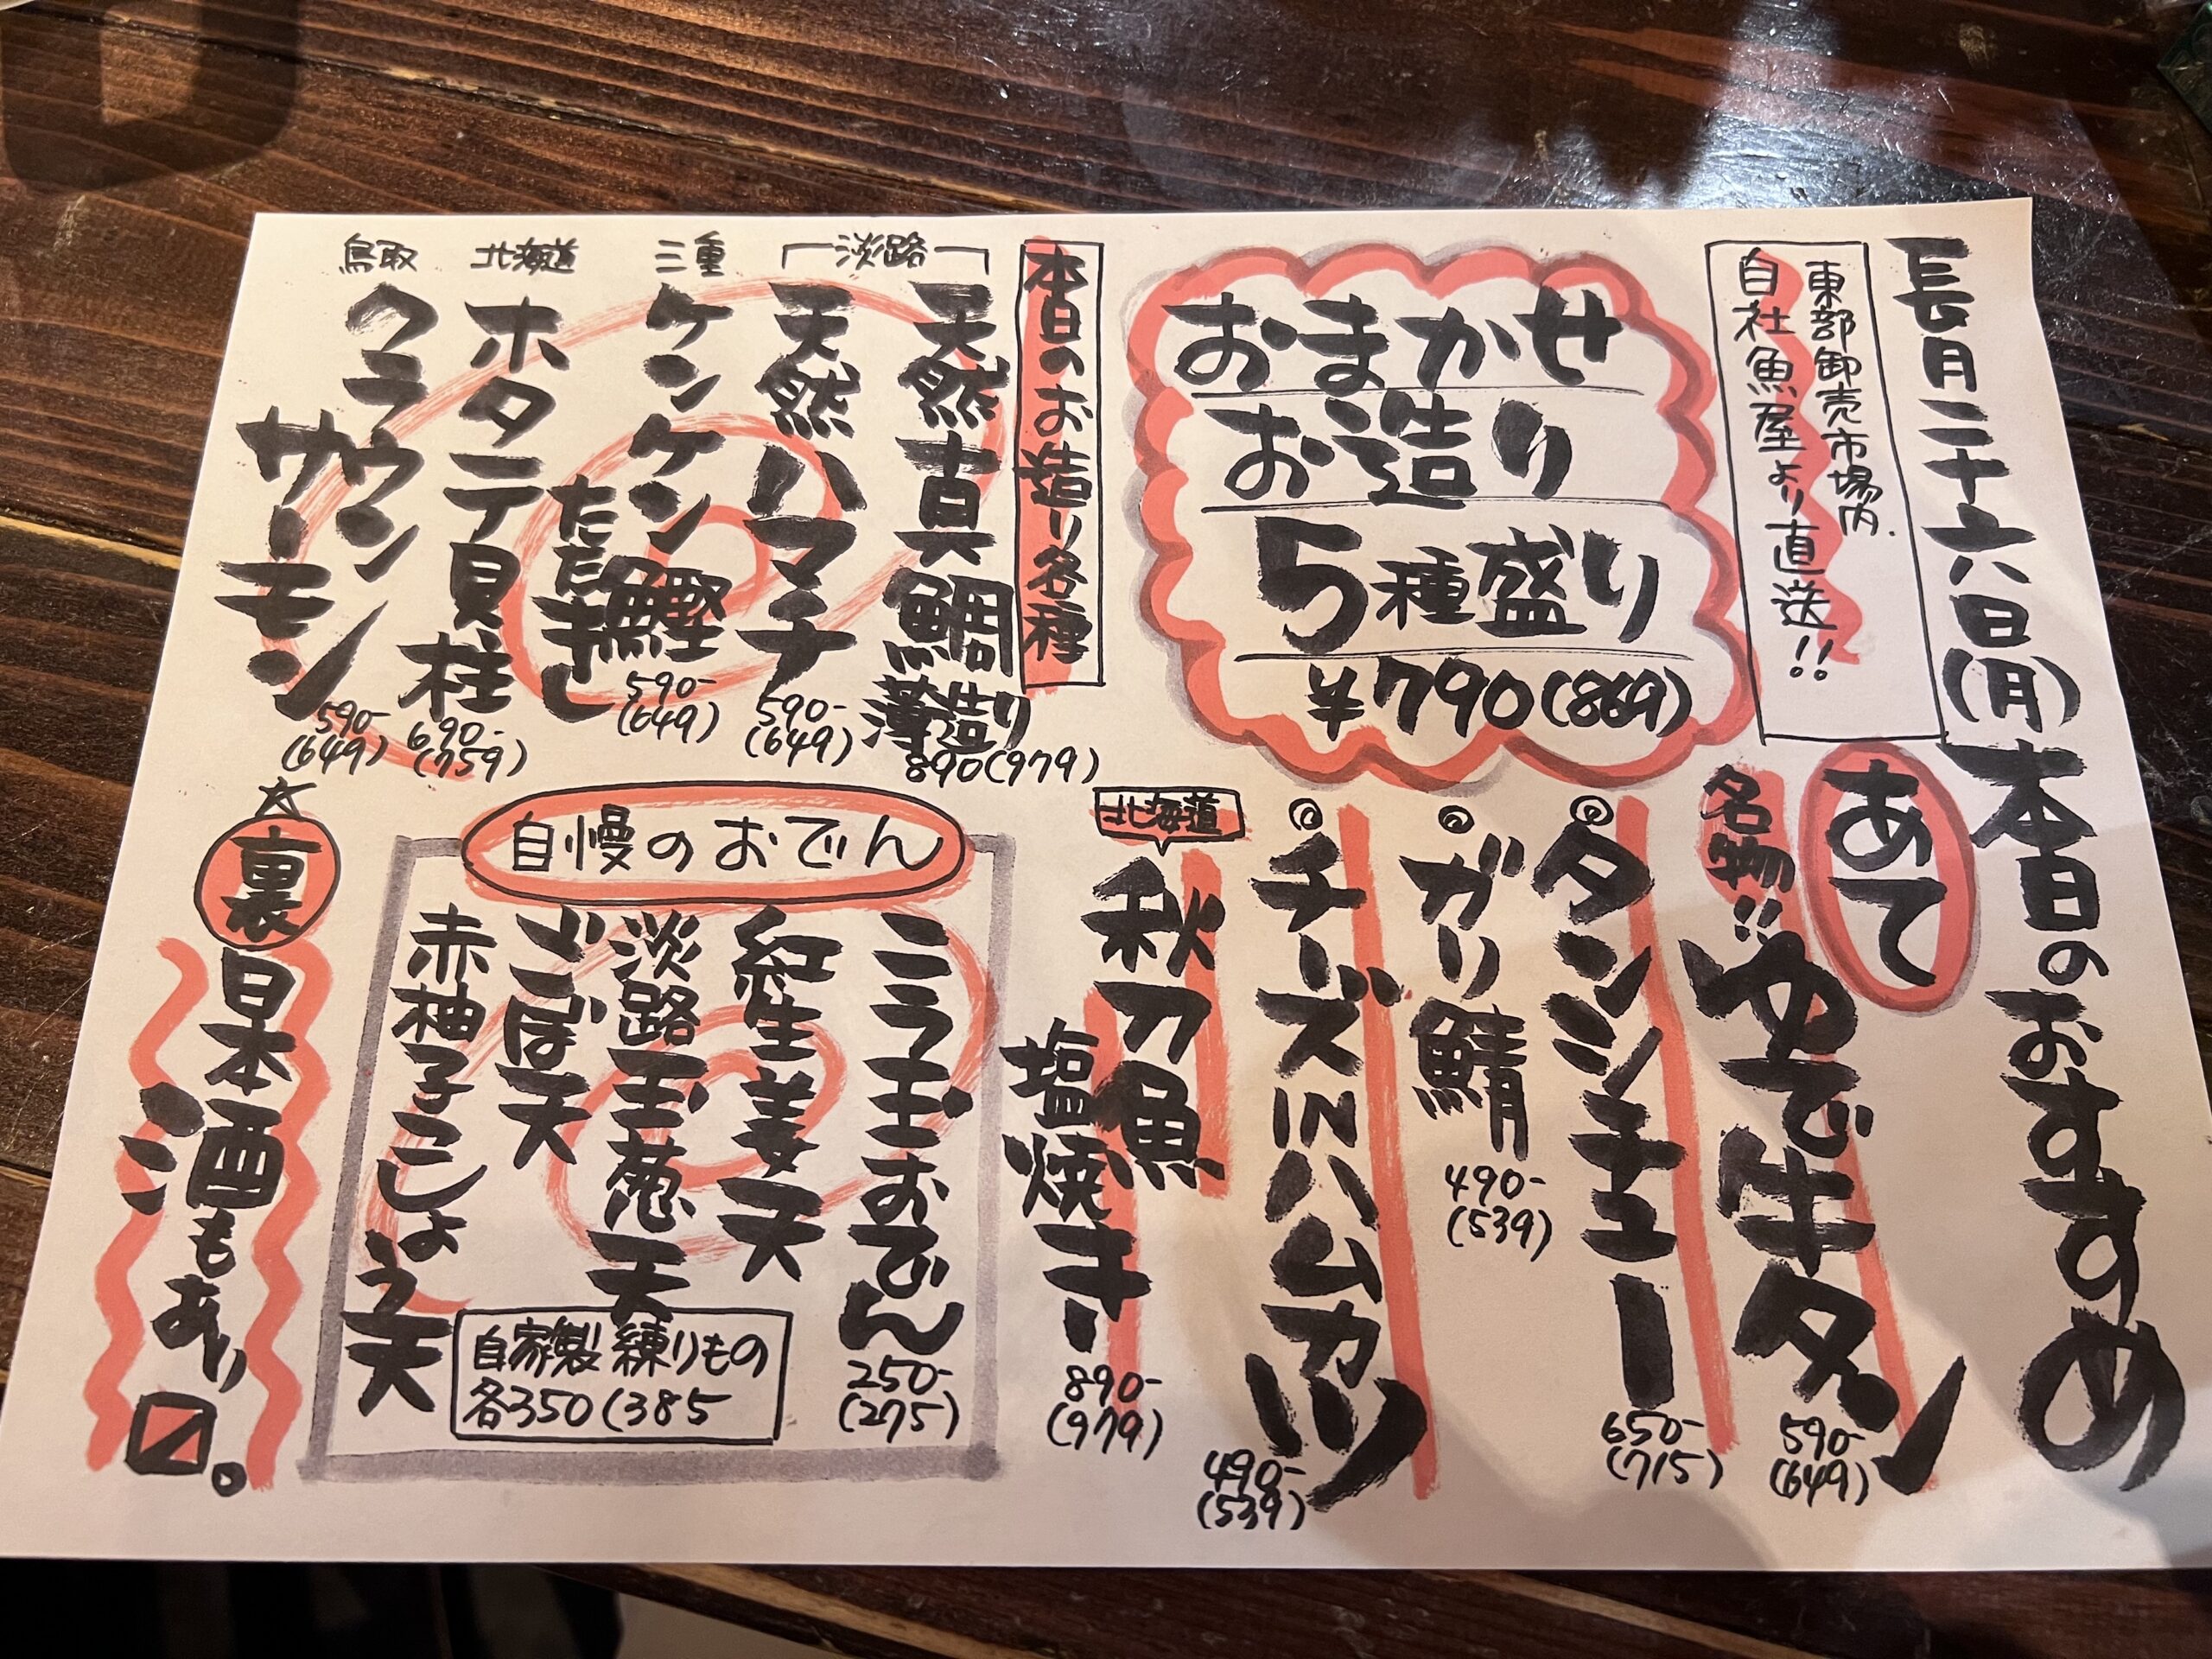 長月二十六日(月)本日のおすすめ
東部卸売市場内.
自社魚屋より直送!!
おまかせ
お造り
5種盛り
¥790(869)
本日のお造り各種
淡路
天然真鯛薄造り
890(979)
天然ハマチ
590-
(649)
三重
ケンケン鰹
たたき
590-
(649)
北海道
ホタテ貝柱
690-
(759)
鳥取
クラウン
サーモン
590-
(649)
あて
名物!!ゆで牛タン
590-
(649)
◎タンシチュー
650-
(715)
◎ガリ鯖
490-
(539)
◎チーズINハムカツ
490-
(539)
北海道
秋刀魚
塩焼き
890-
(979)
自慢のおでん
ニラ玉おでん
250-
(275)
紅生姜天
淡路玉葱天
ごぼ天
赤柚子こしょう天
自家製 練りもの
各350(385
☆裏日本酒もあり〼。